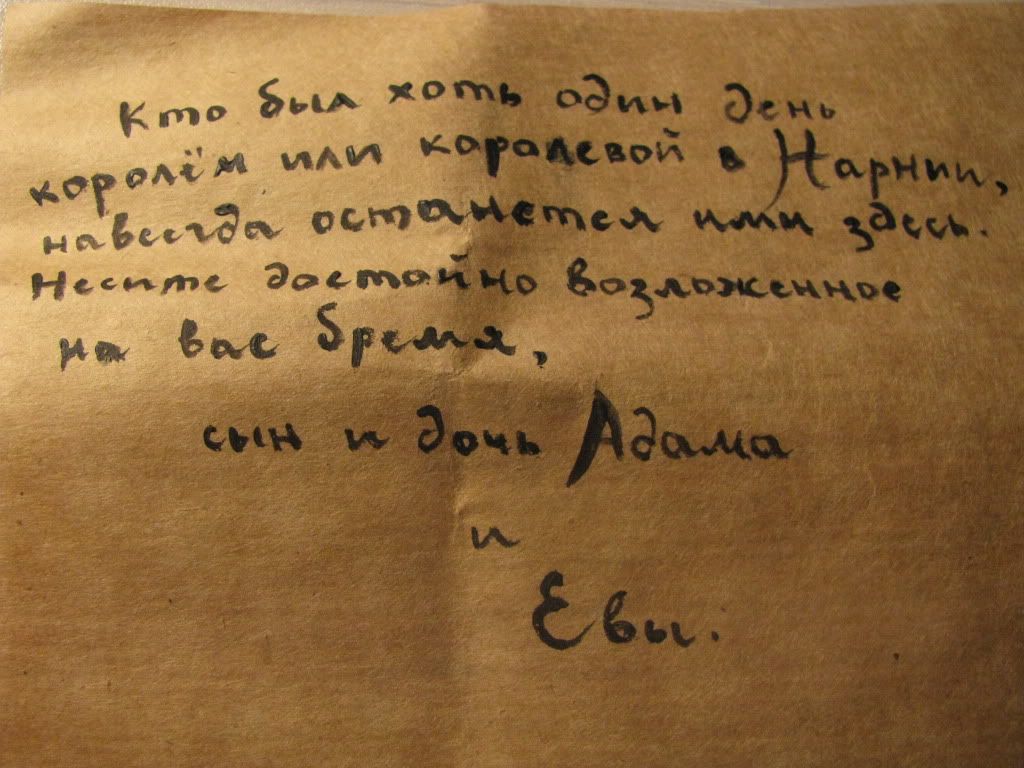 Кто был хоть один день
королём или королевой в Нарнии,
навсегда останется ими здесь.
Несите достойно возложенное
на вас бремя,
сын и дочь Адама
и
Евы.